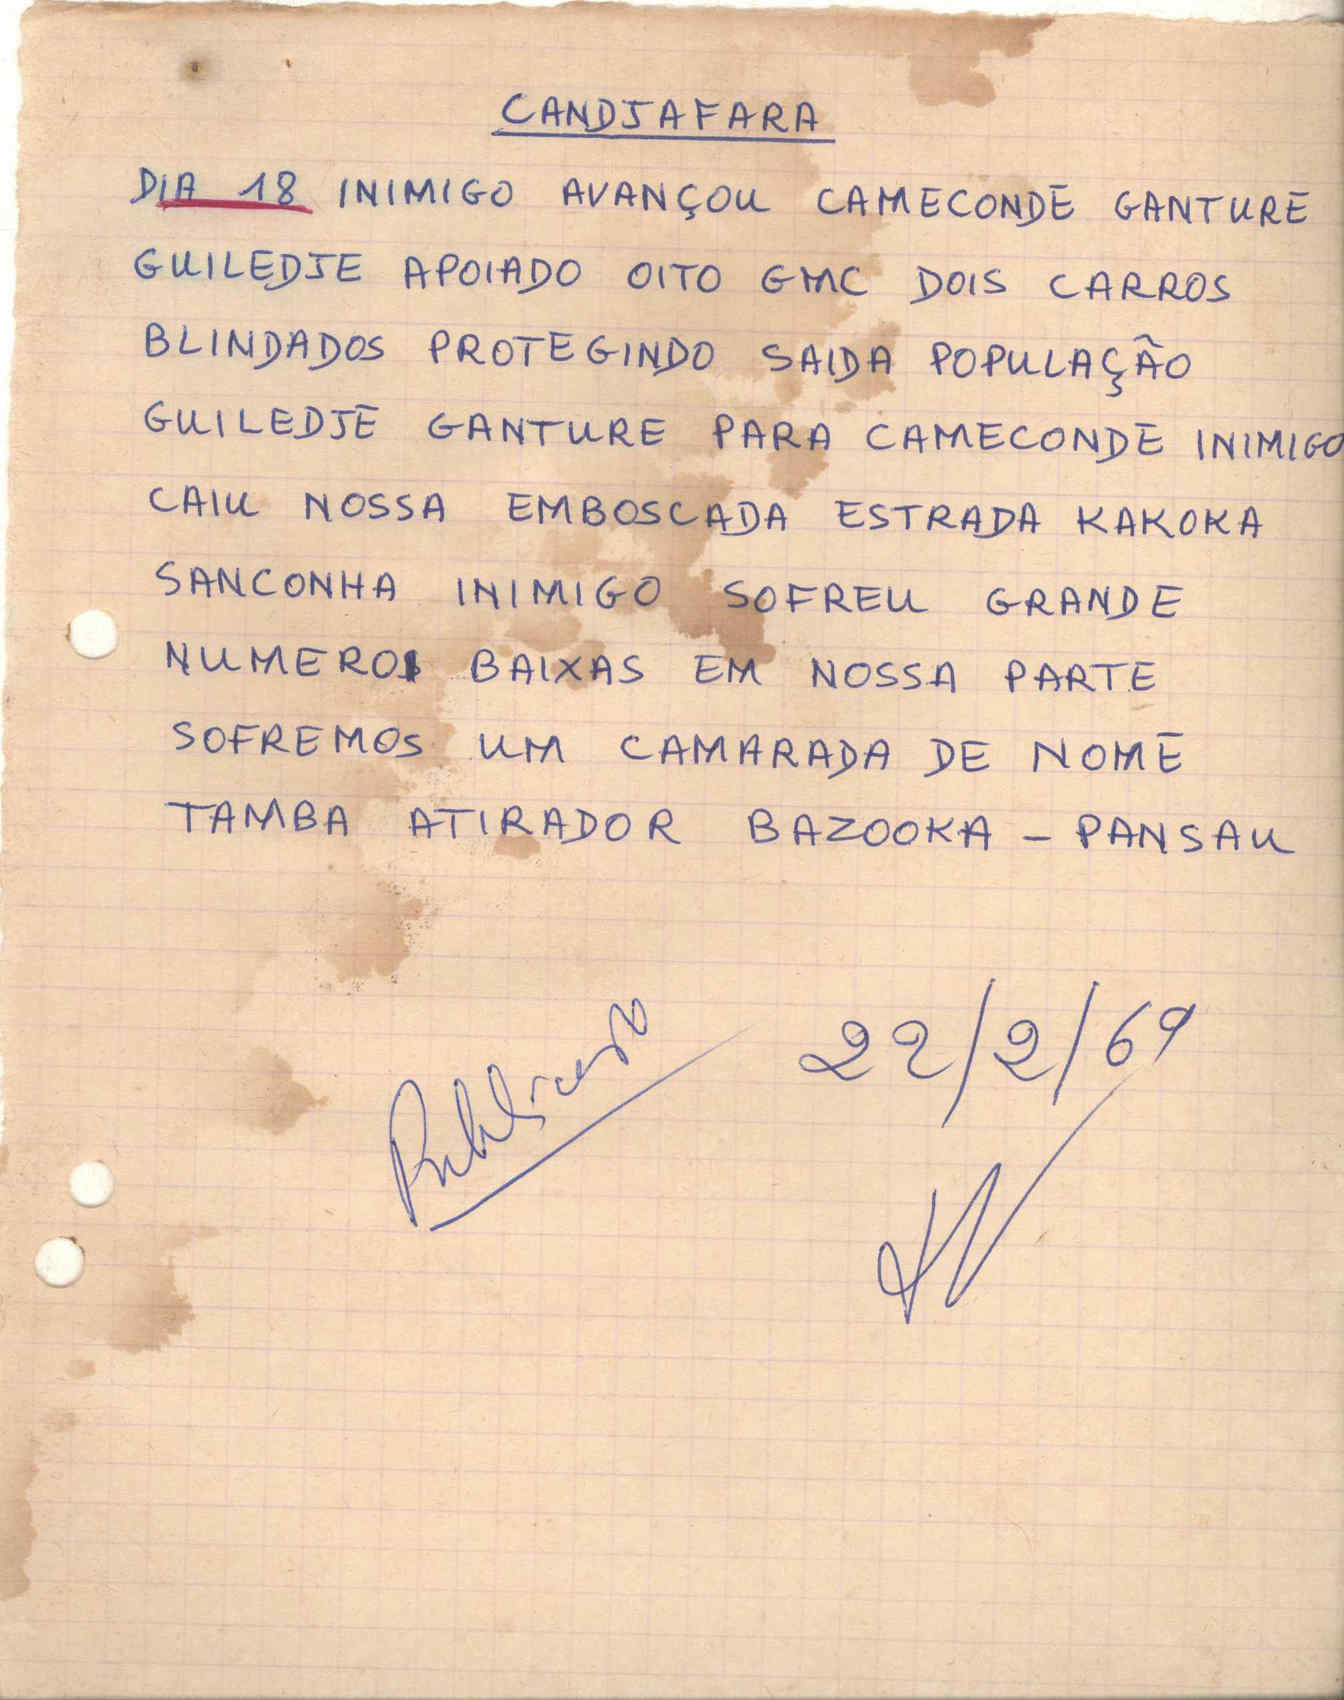 CANDJAFARA
DIA 18 INIMIGO AVANÇOU CAMECONDE GANTURE
GUILEDJE APOIADO OITO GMC DOIS CARROS
BLINDADOS PROTEGINDO SAIDA POPULAÇÃO
GUILEDJE GANTURE PARA CAMECONDE INIMIGO
CAIU NOSSA EMBOSCADA ESTRADA KAKOKA
SANCONHA INIMIGO SOFREU GRANDE
NUMERO BAIXAS EM NOSSA PARTE
SOFREMOS UM CAMARADA DE NOME
TAMBA ATIRADOR BAZOOKA - PANSAU
Publicado
22/2/69